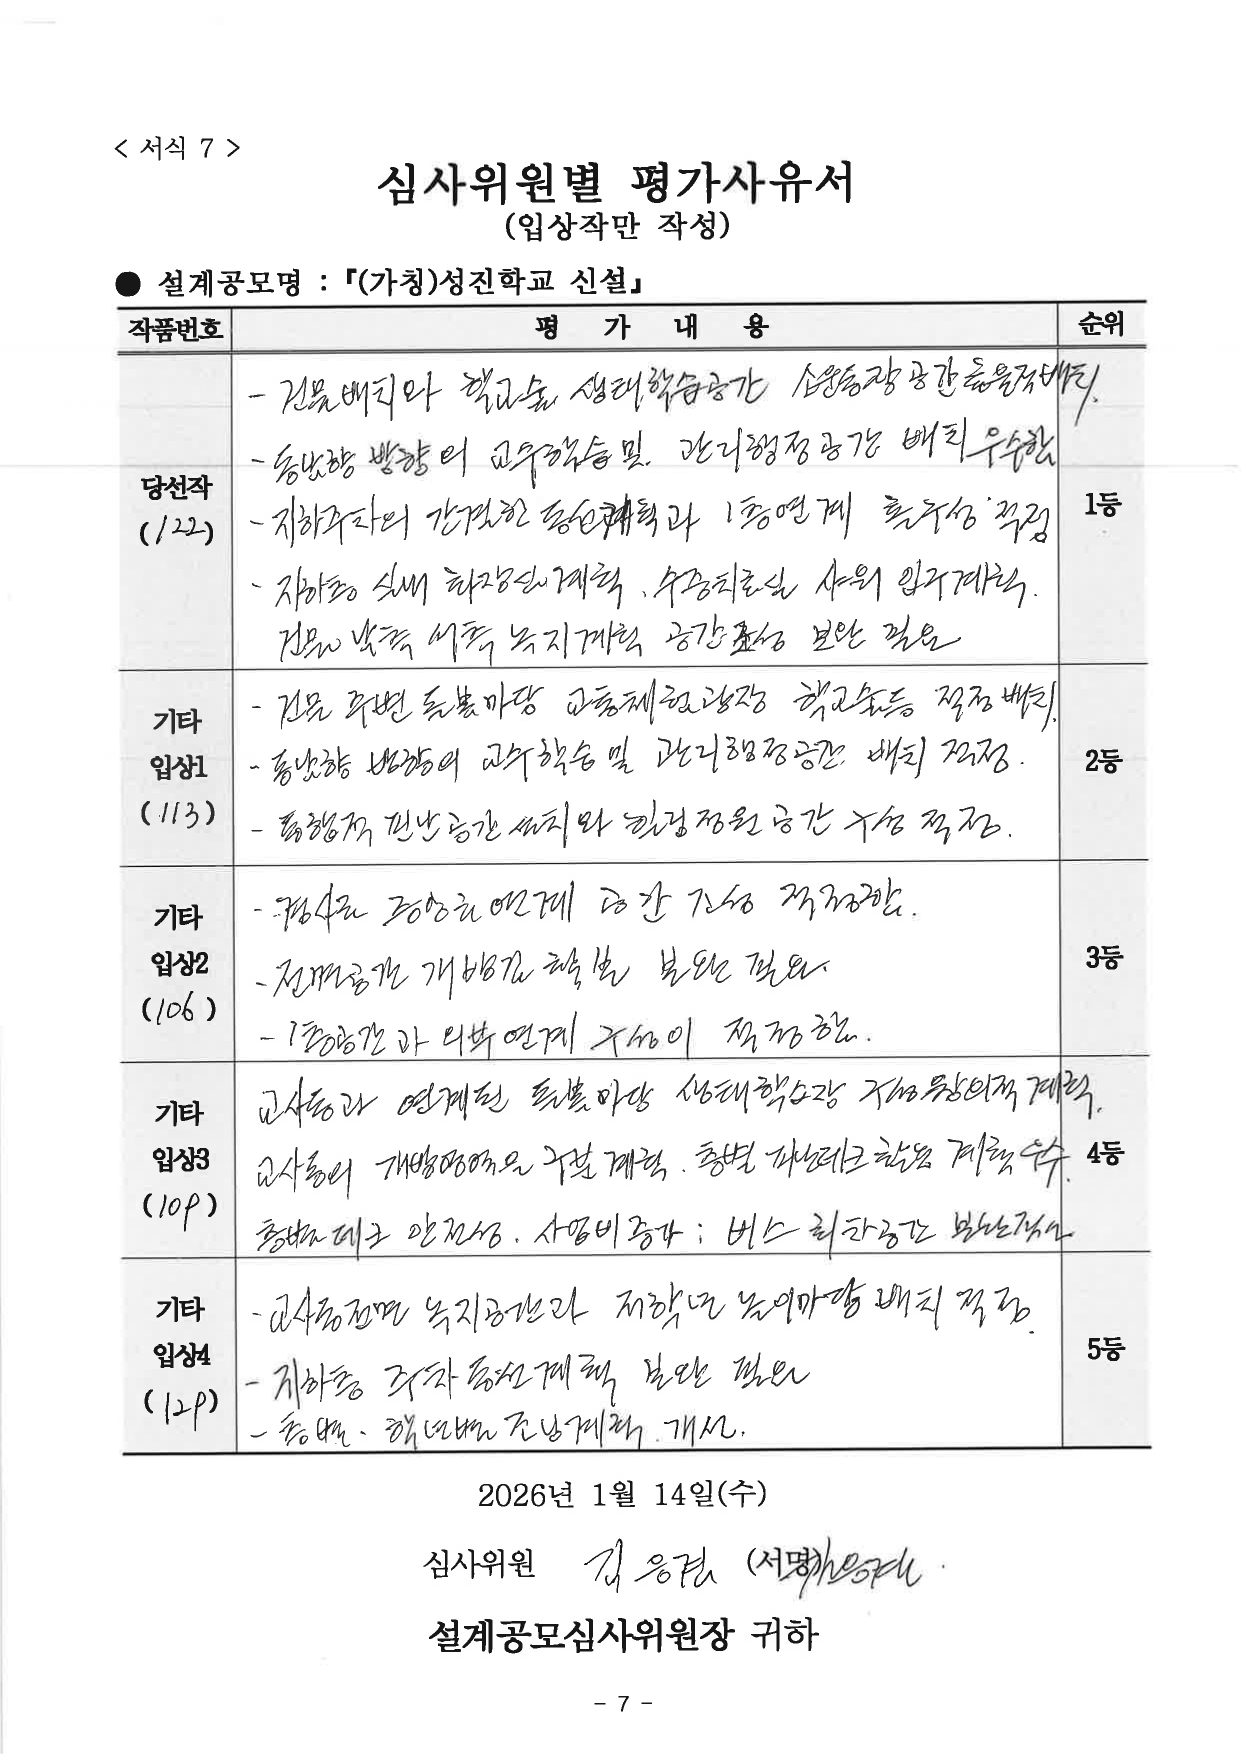 < 서식 7 >
심사위원별 평가사유서
(입상작만 작성)
● 설계공모명 : 『(가칭)성진학교 신설』
작품번호 평 가 내 용 순위
당선작
(122)
- 건물배치와 학교숲 생태학습공간 소운동장 공간 등을 적 배치.
- 동남향 방향의 교수학습 및 관리행정공간 배치 우수함
- 지하주차의 간결한 동선계획과 1층연계 효율성 적정
- 지하층 실내 화장실계획, 수중치료실 샤워 입구계획.
건물 남측 서측 녹지계획 공간조성 보완 필요
1등
기타
입상1
(113)
- 건물 주변 돌봄마당 교통체험광장 학교숲등 적정 배치.
- 동남향 방향의 교수학습 및 관리행정공간 배치 적정.
- 피난공간 설치와 정원 공간 구성 적정.
2등
기타
입상2
(106)
- 경사로 중앙 연계 공간 조성 적정함.
- 전면공간 개방감 확보 보완 필요.
- 1층공간과 외부연계 구성이 적정함.
3등
기타
입상3
(109)
교사동과 연계된 돌봄마당 생태학습장 구성 창의적 계획.
교사동의 개방영역 구분 계획. 층별 피난데크 활용 계획 우수.
층별 데크 안전성. 사업비 증가; 버스 회차공간
4등
기타
입상4
(129)
- 교사동전면 녹지공간과 저학년 놀이마당 배치 적정.
- 지하층 주차 동선계획 보완 필요
- 층별. 학년별 조닝계획 개선.
5등
2026년 1월 14일(수)
심사위원 김 응 (서명)
설계공모심사위원장 귀하
- 7 -